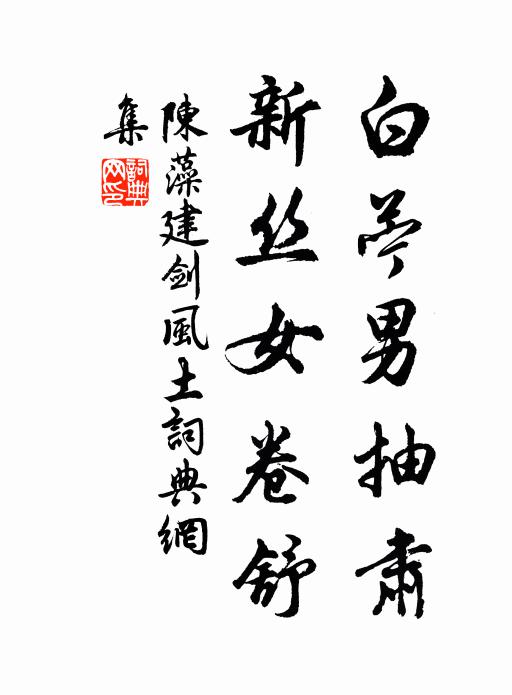 白苧男抽肃
新丝女卷舒
陳藻建劍風土詞典網
集
詞典
网印